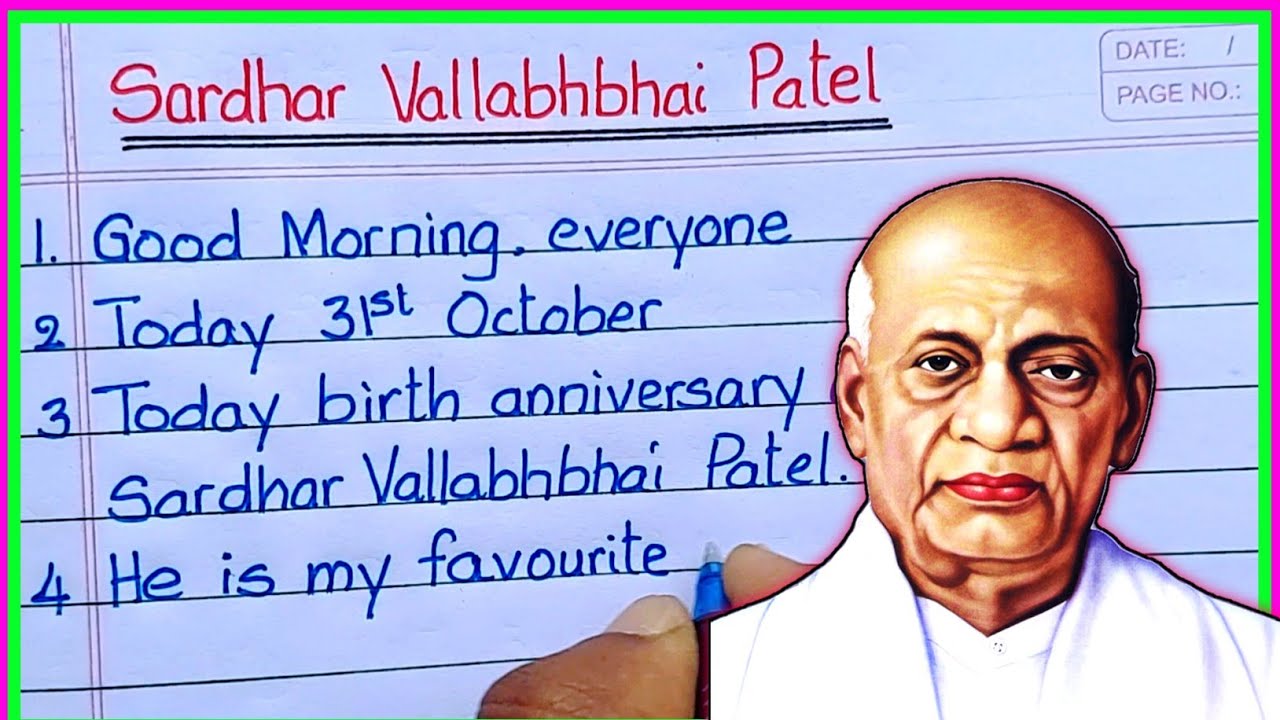 Sardhar Vallabhbhai Patel
DATE: /
PAGE NO.:
1. Good Morning. everyone
2 Today 31st October
3 Today birth anniversary
Sardhar Vallabhbhai Patel.
4 He is my favourite